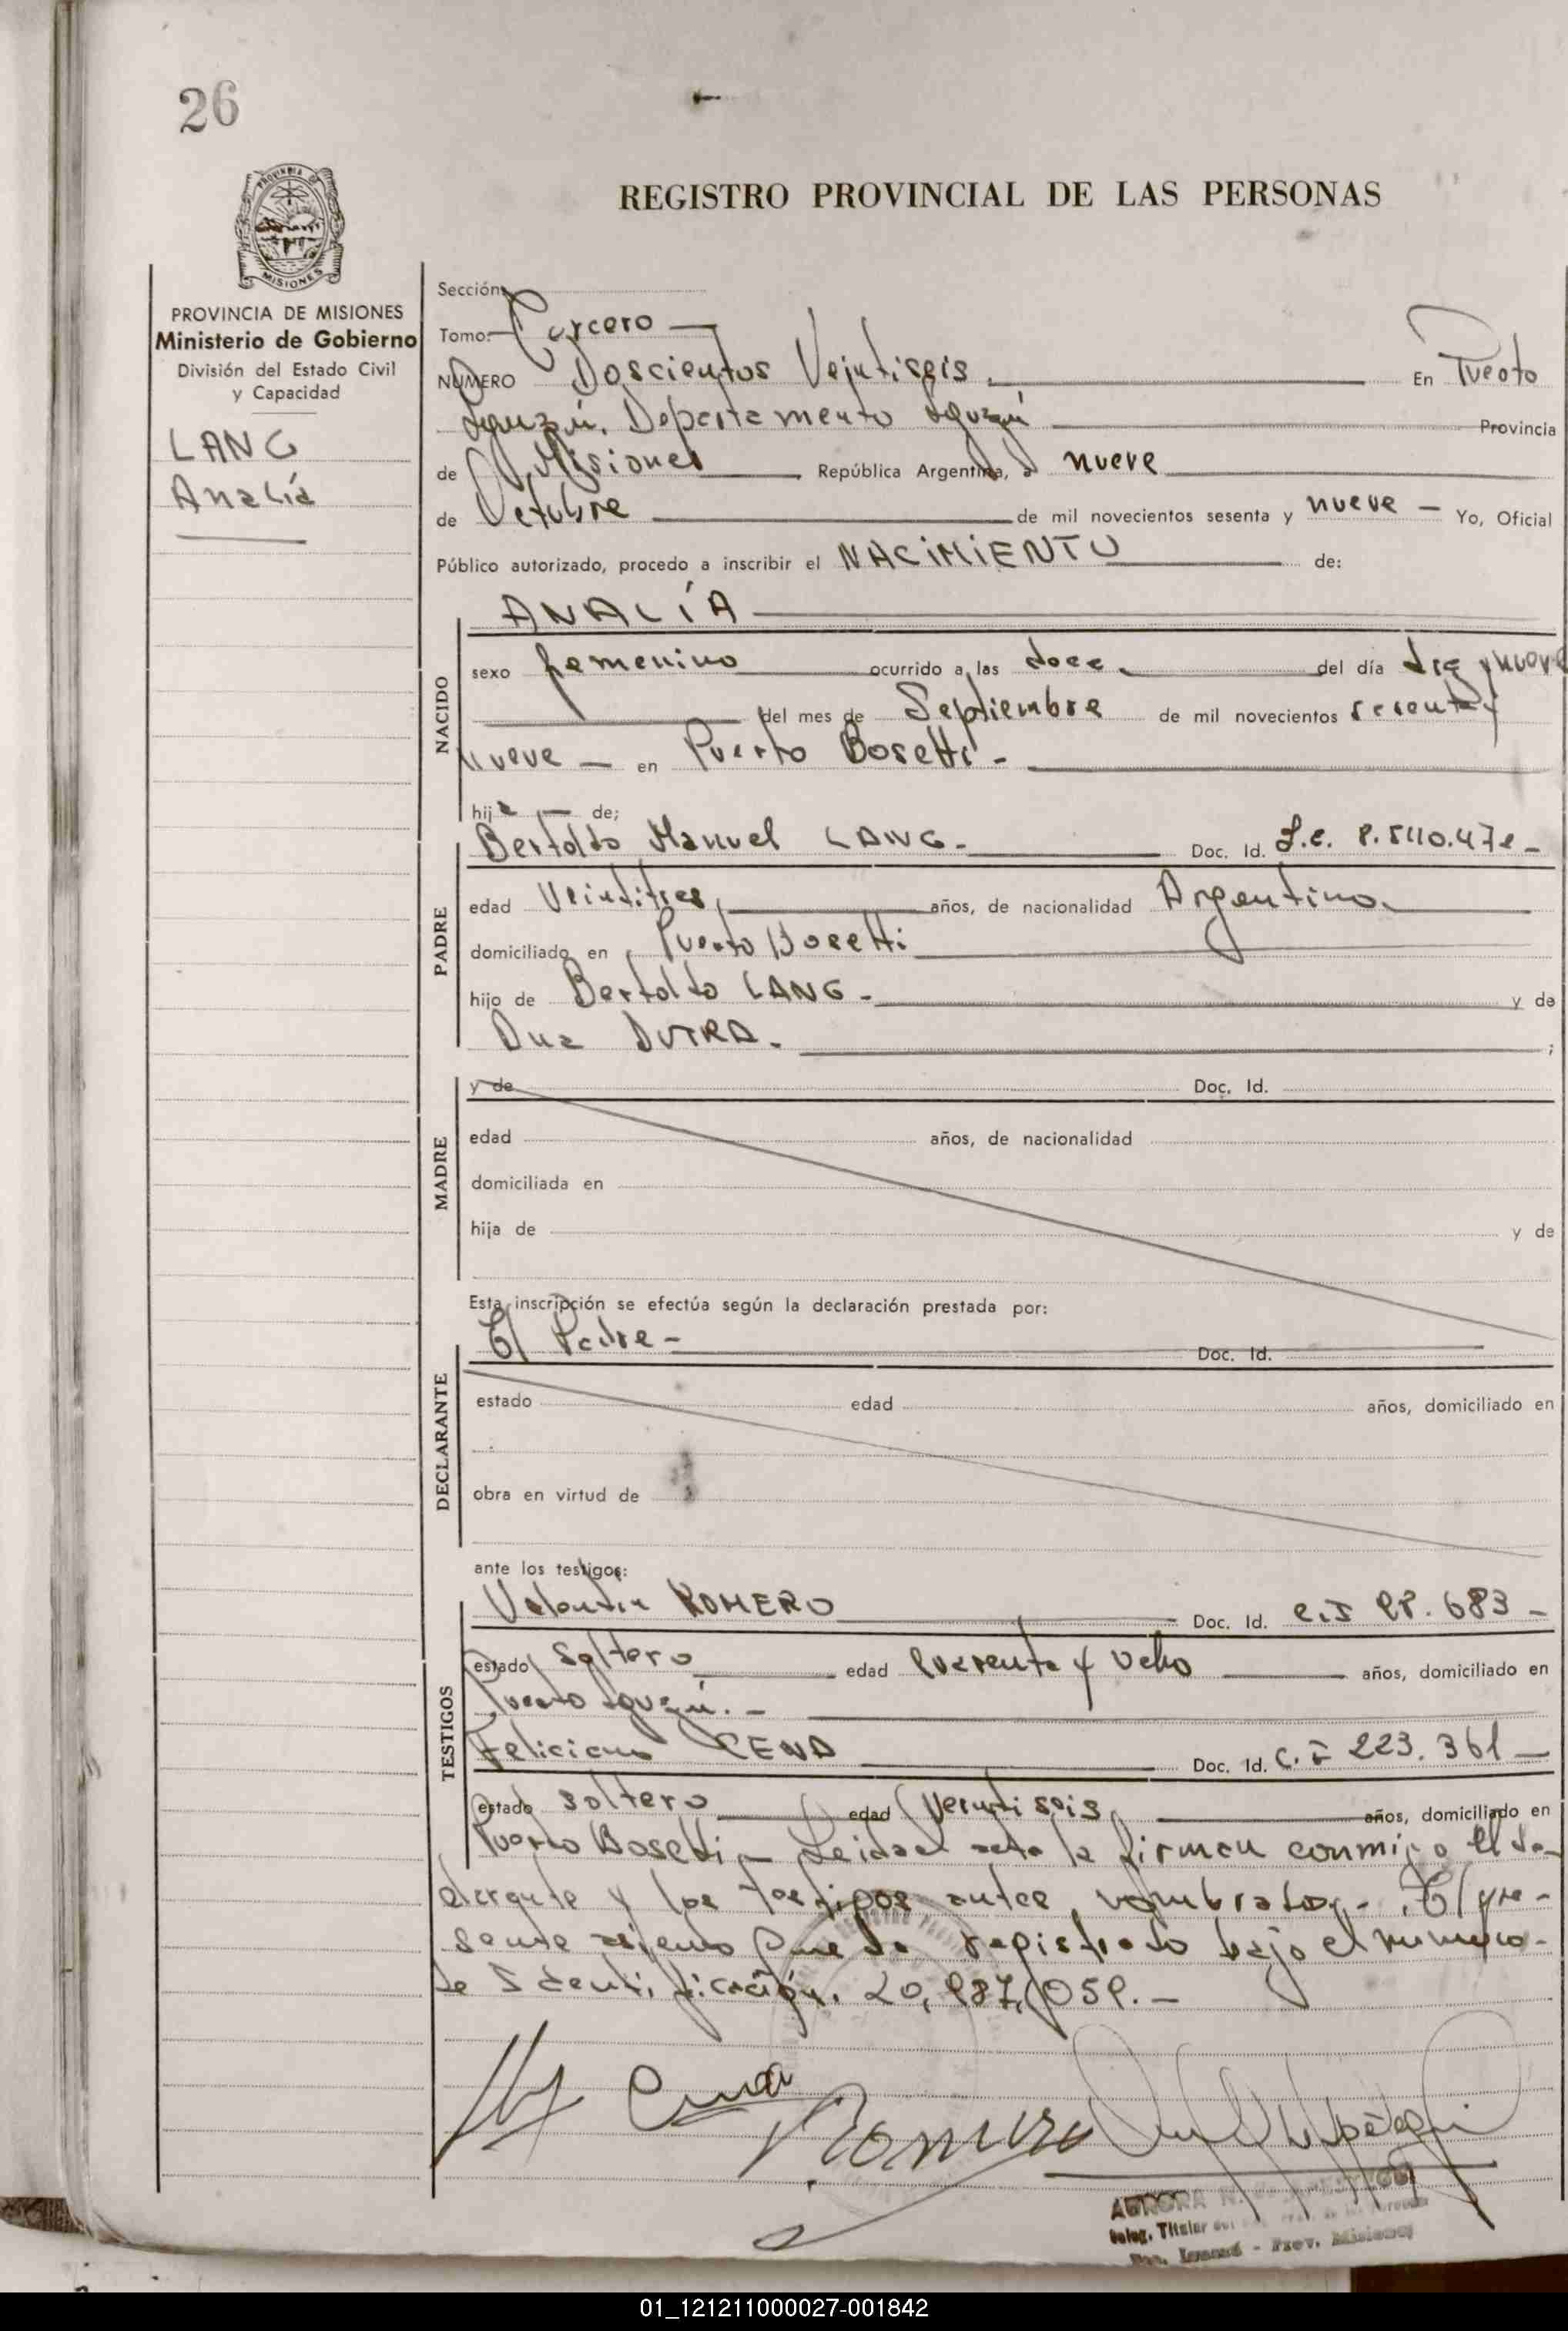 26
REGISTRO PROVINCIAL DE LAS PERSONAS
PROVINCIA DE
MISIONES
PROVINCIA DE MISIONES
Ministerio de Gobierno
División del Estado Civil
y Capacidad
LANG
Analía
Sección
Tomo: Tercero
NUMERO Doscientos Veintiseis. En Puerto
Iguazú. Departamento Iguazú Provincia
de Misiones República Argentina, a nueve
de Octubre de mil novecientos sesenta y nueve — Yo, Oficial
Público autorizado, procedo a inscribir el NACIMIENTO de:
NACIDO
ANALÍA
sexo femenino ocurrido a las doce. del día diez y nueve
del mes de Septiembre de mil novecientos sesenta y
nueve — en Puerto Bosetti -
hija — de;
PADRE
Bertoldo Manuel LANG. Doc. Id. L.E.
edad Veintitres, años, de nacionalidad Argentino.
domiciliado en Puerto Bosetti
hijo de Bertoldo LANG - y de
Ana DUTRA. ;
MADRE
y de Doc. Id.
edad años, de nacionalidad
domiciliada en
hija de y de
Esta inscripción se efectúa según la declaración prestada por:
DECLARANTE
El Padre - Doc. Id.
estado edad años, domiciliado en
obra en virtud de
ante los testigos:
TESTIGOS
Valentin ROMERO Doc. Id. C.I
estado soltero edad Cuarenta y Ocho años, domiciliado en
Puerto Iguazú. -
Feliciano CENA Doc. Id. C.I 223.361 —
estado soltero edad Veintiseis, años, domiciliado en
Puerto Bosetti — Leida el acta la firman conmigo el de-
clarante y los testigos antes nombrados. - El pre-
sente asiento queda registrado bajo el número
de Identificación. 20,987,059. —
Cena
Romero
AURORA N.
Deleg. Titular
Dep. Iguazú - Prov. Misiones
01_121211000027-001842